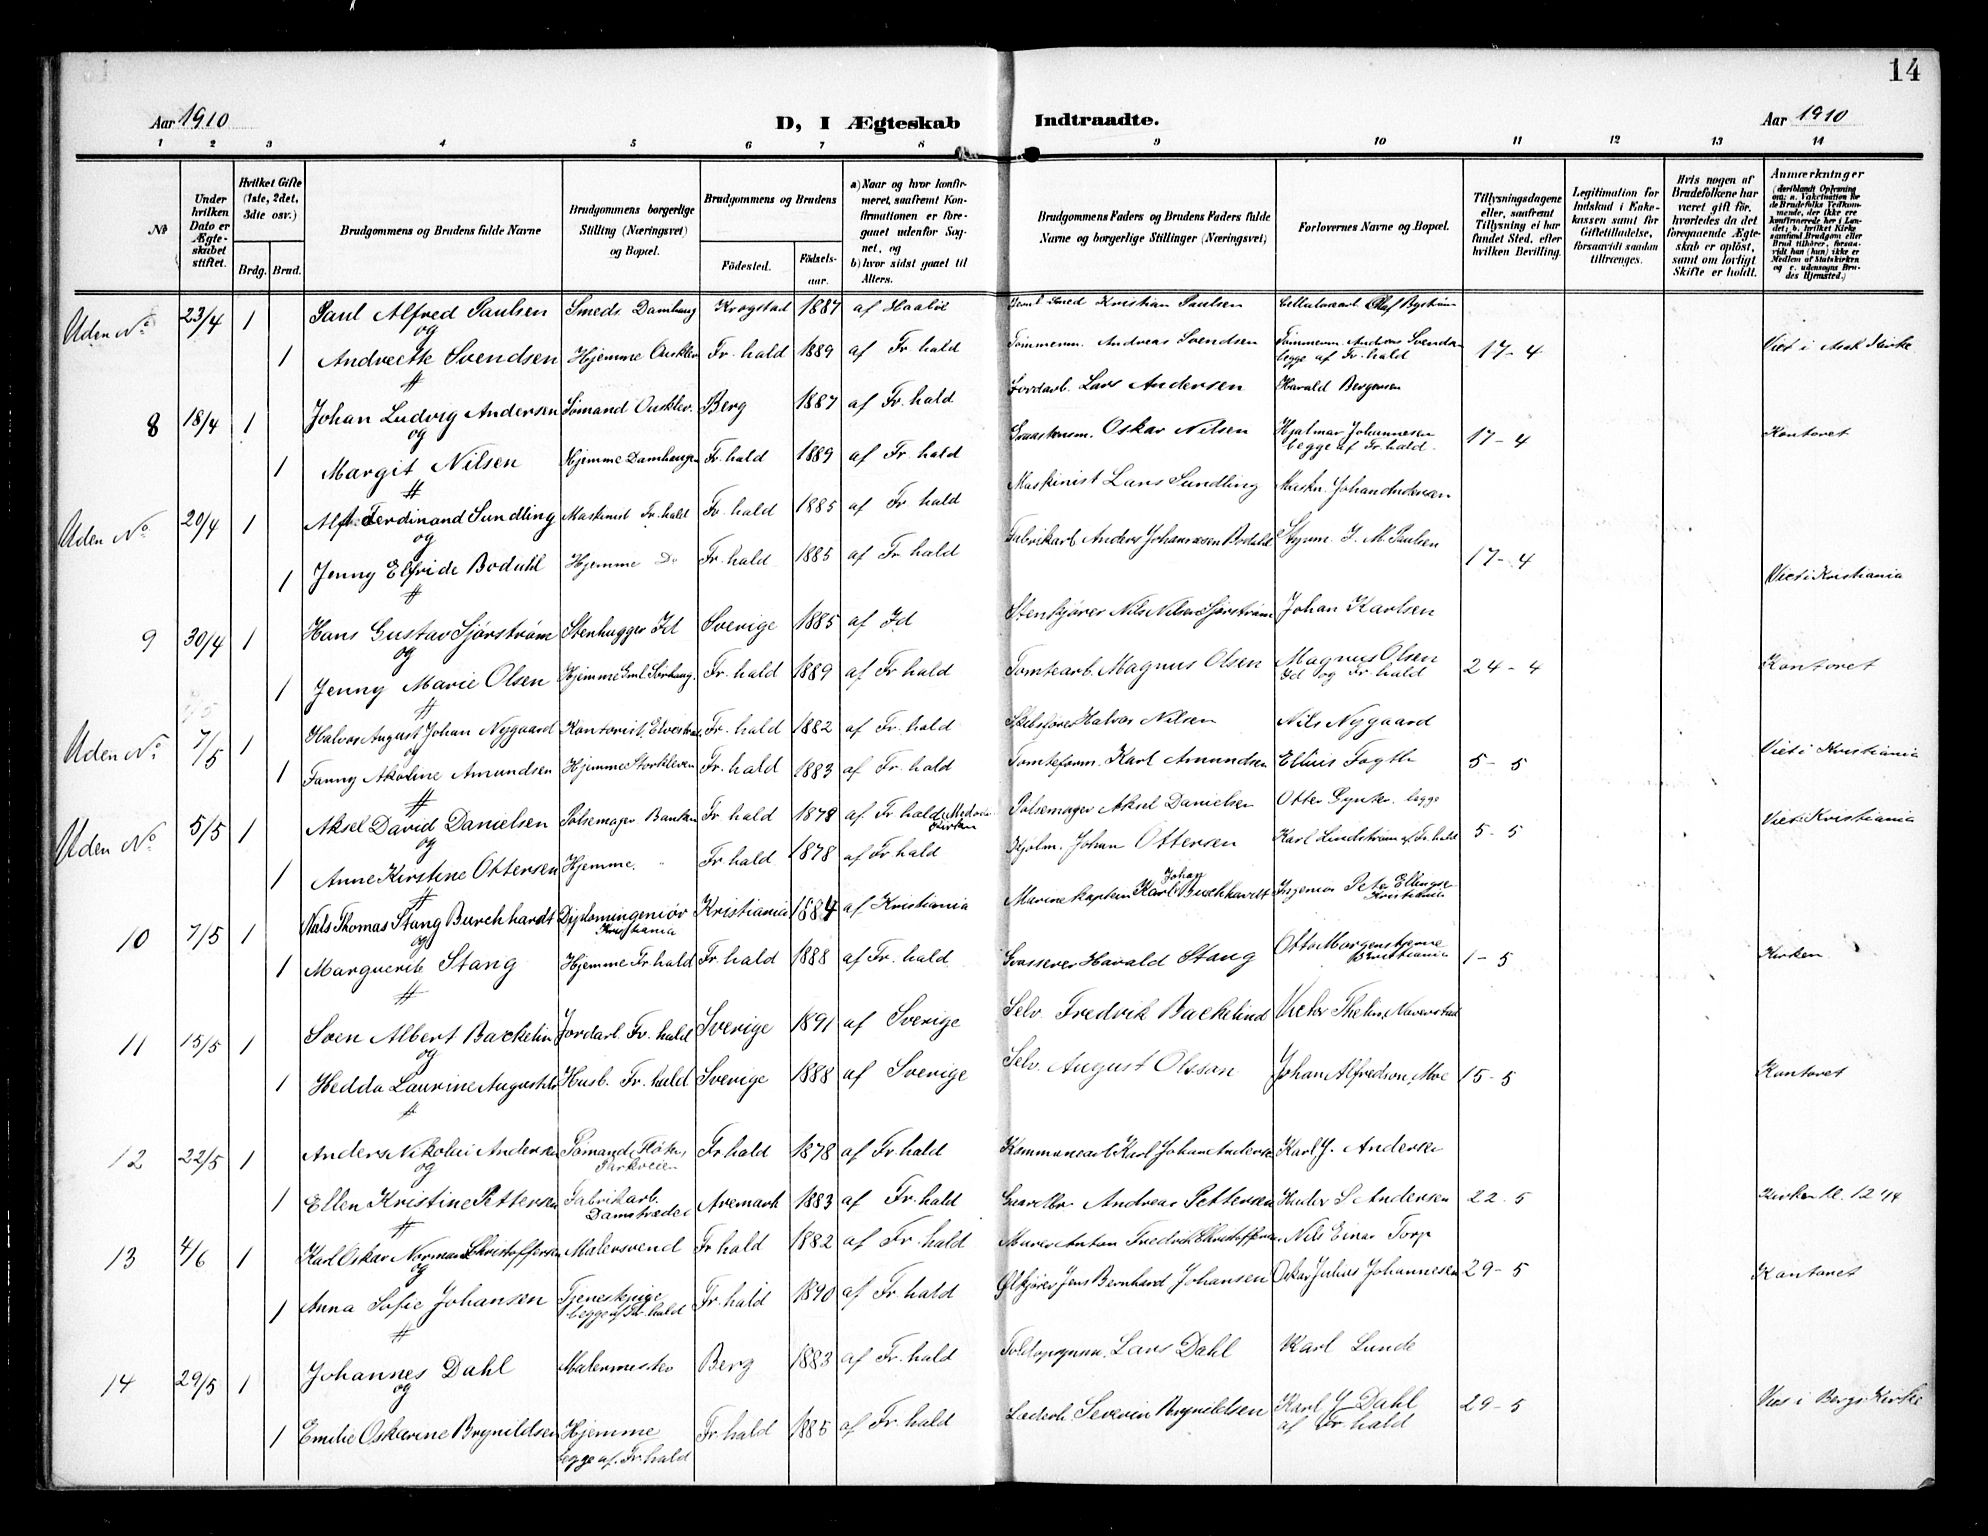 14
Aar 1910
D, I Ægteskab Indtraadte.
Aar 1910
1 2 3 4 5 6 7 8 9 10 11 12 13 14
№
Under hvilken Dato er Ægteskabet stiftet.
Hvilket Gifte (1ste, 2det, 3die osv.)
Brdg. Brud.
Brudgommens og Brudens fulde Navne
Brudgommens borgerlige Stilling (Næringsvei) og Bopæl.
Brudgommens og Brudens
Födested. Födselsaar.
a) Naar og hvor konfirmeret, saafremt Konfirmationen er foregaaet udenfor Sognet, og
b) hvor sidst gaaet til Alters.
Brudgommens Faders og Brudens Faders fulde Navne og borgerlige Stillinger (Næringsvei)
Forlovernes Navne og Bopæl.
Tillysningsdagene eller, saafremt Tillysning ei har fundet Sted, efter hvilken Bevilling.
Legitimation for Indskud i Enkekassen samt for Giftetilladelse, forsaavidt saadan tiltrænges.
Hvis nogen af Brudefolkene har været gift før, hvorledes da det foregaaende Ægteskab er opløst, samt om lovligt Skifte er holdt.
Anmærkninger
(deriblandt Oplysning om: a. Vaccination for de Brudefolks Vedkommende, der ikke ere konfirmerede her i Landet; b. hvilket Kirkesamfund Brudgom eller Brud tilhører, forsaavidt han (hun) ikke er Medlem af Statskirken og c. udensogns Brudes Hjemsted.)
Uden No. 23/4 1 Paul Alfred Paulsen Smed Damhaug Krogstad 1887 af Smed Kristian Paulsen
og
1 Andrea Svendsen Hjemme Fr. hald 1889 af Fr. hald Tømmerm. Andreas Svendsen Tømmerm. Andreas begge af Fr. hald 17-4 Viet i Ask Kirke
8 18/4 1 Johan Ludvig Andersen Sømand Berg 1887 af Fr. hald Jordarb. Lars Andersen Harald Bergersen
og
1 Margit Nilsen Hjemme Damhaugen Fr. hald 1889 af Fr. hald Oskar Nilsen Hjalmar Johannesen begge af Fr. hald. 17-4 Kontoret
Uden No. 20/4 1 Alf Ferdinand Sundling Maskinist Fr. hald Fr. hald 1885 af Fr. hald Maskinist Lars Sundling Maskn. Johan Andersen
og
1 Jenny Elfride Bodahl Hjemme Do Fr. hald 1885 af Fr. hald Fabrikarb. Anders Johannesen Bodahl Styrm. J. M. Paulsen 17-4 Viet i Kristiania
9 30/4 1 Hans Gustav Sjørstrøm Stenhugger Id Sverige 1885 af Id Stenkjører Nils Nilsen Sjørstrøm Johan Karlsen
og
1 Jenny Marie Olsen Hjemme Fr. hald 1889 af Fr. hald Tomtearb. Magnus Olsen Magnus Olsen Id og Fr hald 24-4 Kontoret
Uden No. 7/5 1 Halvor August Johan Nygaard Kontorist, Fr. hald 1882 af Fr. hald Halvor Nilsen Nils Nygaard
og
1 Fanny Amundsen Hjemme Storkleven Fr. hald 1883 af Fr. hald Tomteform. Karl Amundsen 5-5 Viet i Kristiania
Uden No. 5/5 1 Aksel David Danielsen Pølsemager Banken Fr. hald 1878 af Fr. hald Pølsemager Danielsen begge
og
1 Anne Kirstine Ottersen Hjemme. " Fr. hald 1878 af Fr. hald Johan Ottersen Karl Lindstrøm af Fr. hald 5-5 Viet i Kristiania
10 7/5 1 Nils Thomas Stang Burchhardt Diplomingeniør Kristiania Kristiania 1884 af Kristiania Marinekaptein Johan Karl Buchhardt Ingeniør Peter Kristiania
og
1 Marguerite Stang Hjemme Fr. hald Fr. hald 1888 af Fr. hald Harald Stang Otto Morgenstjerne Kristiania 1-5 Kirken
11 15/5 1 Sven Albert Backelin Jordarb. Fr. hald Sverige 1891 af Sverige Selv. Fredrik Backelind Victor Thelin,
og
1 Hedda Laurine Husb. Fr. hald Sverige 1888 af Sverige Selv. August Olssan Johan Alfredson, Moe 15-5 Kontoret
12 22/5 1 Anders Nikolai Andersen Sømand Parkveien Fr. hald 1878 af Fr. hald Karl Johan Andersen Karl J. Andersen
og
1 Ellen Kristine Pettersen Fabrikarb. Damstrædet Aremark 1883 af Fr. hald Andreas Pettersen Andersen 22-5 Kirken kl. 12 1/4
13 4/6 1 Karl Oskar Norman Christoffersen Malersvend Fr. hald 1882 af Fr. hald Murer Anton Fredrik Christoffersen Nils Einar Torp
og
1 Anna Sofie Johansen Tjenestpige begge af Fr. hald Fr. hald 1890 af Fr. hald Ølkjører Jens Bernhard Johansen Oskar Julius Johannesen 29-5 Kontoret
14 29/5 1 Johannes Dahl Malermester Berg 1883 af Fr. hald Lars Dahl Karl Lunde
og
1 Emilie Oskarine Brynildsen Hjemme begge af. Fr. hald Fr. hald 1885 af Fr. hald Severin Brynildsen Karl J Dahl af Fr hald 29-5 Vies i Bergs Kirke